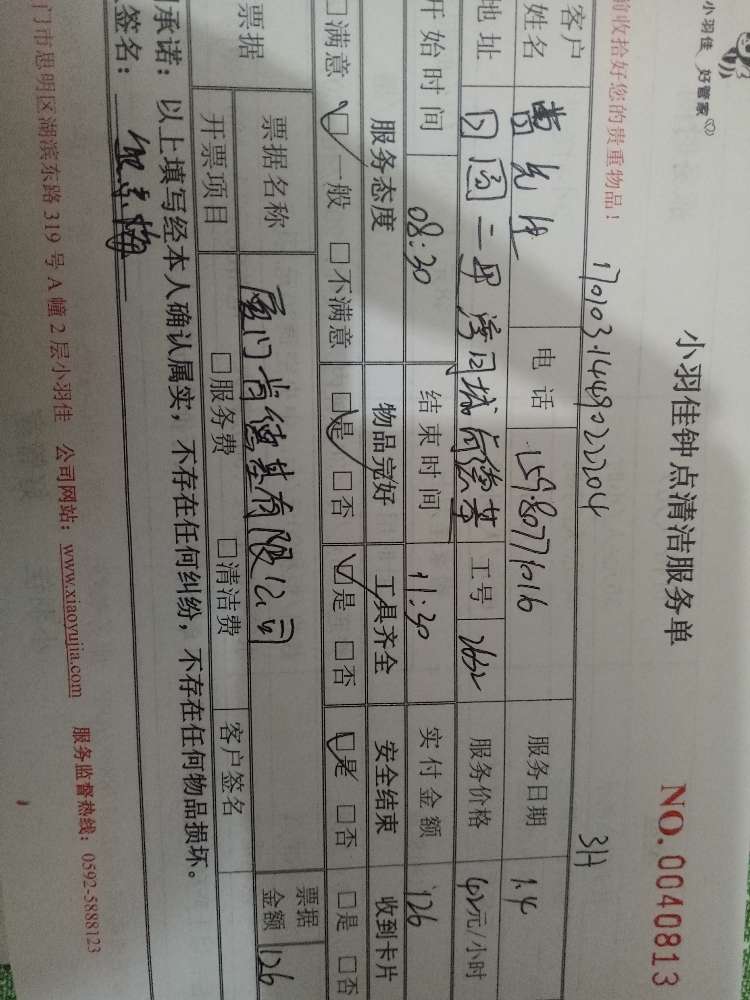 小羽佳 好管家
小羽佳钟点清洁服务单
NO.0040813
前收拾好您的贵重物品!
170103.1449022204
3H
客户姓名 曹先生 电话 159.80771016 服务日期 1.4
地址 工号 2632 服务价格 42元/小时
开始时间 08:30 结束时间 11:30 实付金额 126
服务态度 物品完好 工具齐全 安全结束 收到卡片
□满意 □一般 □不满意 □是 □否 □是 □否 □是 □否 □是 □否
票据 票据名称 厦门肯德基有限公司 票据金额 126
开票项目 □服务费 □清洁费 客户签名
承诺:以上填写经本人确认属实,不存在任何纠纷,不存在任何物品损坏。
签名:
门市思明区湖滨东路319号A幢2层小羽佳 公司网站:www.xiaoyujia.com 服务监督热线:0592-5888123